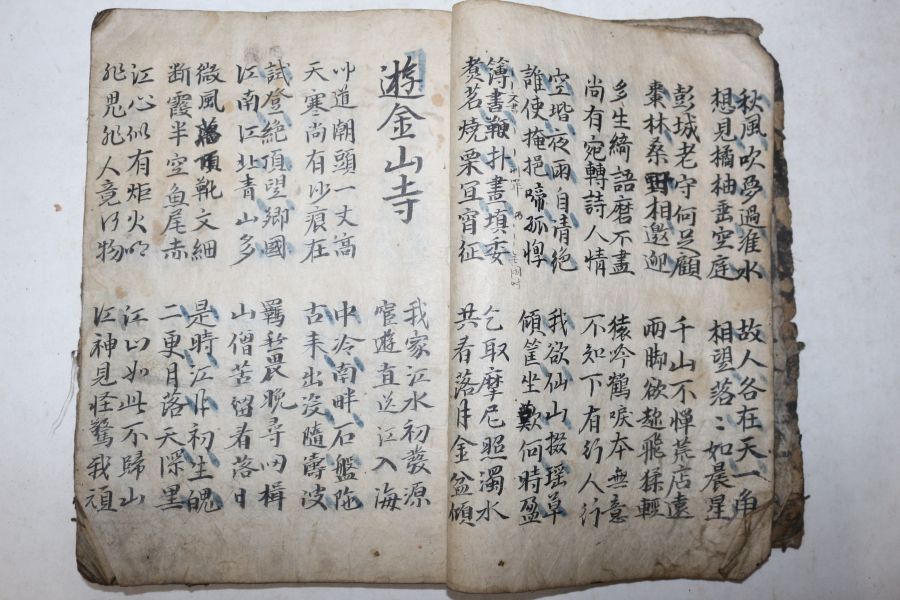 秋風吹夢過淮水
想見橘柚垂空庭
故人各在天一角
相望落〻如晨星
彭城老守何足顧
棗林桑野相邀迎
千山不憚荒店遠
兩脚欲趂飛猱輕
多生綺語磨不盡
尚有宛轉詩人情
猿吟鶴唳本無意
不知下有行人行
空堦夜雨自清絶
誰使掩挹啼孤惸
我欲仙山掇瑤草
傾筐坐歎何時盈
簿書鞭扑晝填委
煑茗燒栗宜宵征
乞取摩尼照濁水
共看落月金盆傾
遊金山寺
我家江水初發源
官遊直送江入海
聞道潮頭一丈高
天寒尚有沙痕在
中冷南畔石盤陁
古来出没隨濤波
試登絶頂望鄉國
江南江北青山多
羈愁畏晚尋歸楫
山僧苦留看落日
微風萬頃靴文細
断霞半空魚尾赤
是時江月初生魄
二更月落天深黑
江心似有炬火明
非鬼非人竟何物
江山如此不歸山
江神見怪驚我頑